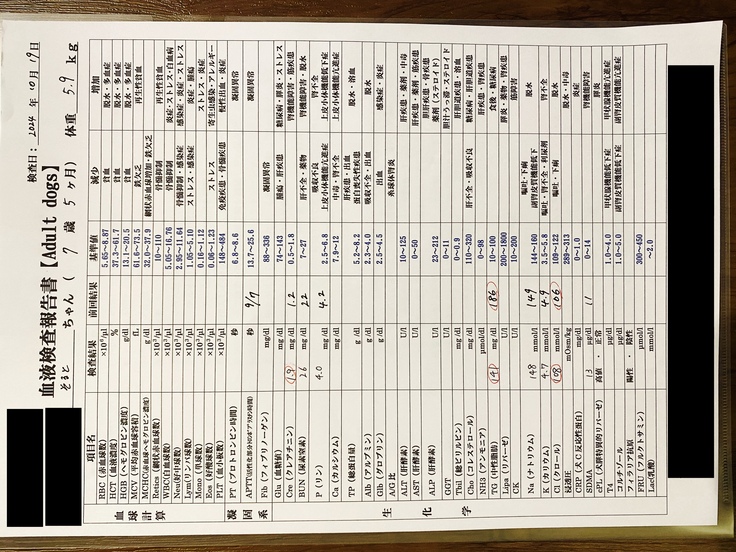 検査日： 2024 年 10月 19日
血液検査報告書【Adult dogs】
そると ちゃん（ 7 歳 5 ヶ月） 体重 5.9 kg
項目名 検査結果 前回結果 基準値 減少 増加
血球計算
RBC (赤血球数) ×10⁶/μl 5.65~8.87 貧血 脱水・多血症
HCT (血液濃度) % 37.3~61.7 貧血 脱水・多血症
HGB (ヘモグロビン濃度) g/dl 13.1~20.5 貧血 脱水・多血症
MCV (平均赤血球容積) fL 61.6~73.5 鉄欠乏 再生性貧血
MCHC(赤血球ヘモグロビン濃度) g/dl 32.0~37.9 網状赤血球増加・鉄欠乏
Retics (網状赤血球数) ×10³/μl 10~110 骨髄抑制 再生性貧血
WBC(白血球数) ×10³/μl 5.05~16.76 骨髄抑制 炎症・ストレス・白血病
Neu(好中球数) ×10³/μl 2.95~11.64 骨髄抑制・感染症 感染症・炎症・ストレス
Lym(リンパ球数) ×10³/μl 1.05~5.10 ストレス・感染症 炎症・腫瘍
Mono (単球数) ×10³/μl 0.16~1.12 ストレス・炎症
Eos (好酸球数) ×10³/μl 0.06~1.23 ストレス 寄生虫感染・アレルギー
PLT (血小板数) ×10³/μl 148~484 免疫疾患・骨髄疾患 慢性出血・炎症
凝固系
PT (プロトロンビン時間) 秒 6.8~8.6 凝固異常
APTT 秒 9/7 13.7~25.6 凝固異常
Fib (フィブリノーゲン) mg/dl 88~336 凝固異常
生化学
Glu (血糖値) mg/dl 74~143 腫瘍・肝疾患 糖尿病・膵炎・ストレス
Cre (クレアチニン) 1.9 mg/dl 1.2 0.5~1.8 腎機能障害・筋疾患
BUN (尿素窒素) 26 mg/dl 22 7~27 肝不全・薬物 腎機能障害・脱水
P (リン) 4.0 mg/dl 4.2 2.5~6.8 吸収不良 腎不全
Ca (カルシウム) mg/dl 7.9~12 上皮小体機能低下症
TP (総蛋白量) g/dl 5.2~8.2 肝疾患・出血 脱水・溶血
Alb (アルブミン) g/dl 2.3~4.0 吸収不全・出血 脱水
Glb (グロブリン) g/dl 2.5~4.5 出血 感染症・炎症
A/G比
ALT (肝酵素) U/l 10~125 肝疾患・薬剤・中毒
AST (肝酵素) U/l 0~50 肝疾患・薬剤・筋疾患
ALP (肝酵素) U/l 23~212 薬剤（ステロイド）
GGT U/l 0~11 胆汁うっ滞・ステロイド
Tbil (総ビリルビン) mg/dl 0~0.9 肝胆道疾患・溶血
Cho (コレステロール) mg/dl 110~320 肝不全・吸収不良 糖尿病・肝胆道疾患
NH3 (アンモニア) μmol/l 0~98 肝疾患・腎疾患
TG (中性脂肪) 141 mg/dl 186 10~100 食後・糖尿病
Lipa (リパーゼ) U/l 200~1800 膵炎・薬物・腎疾患
CK U/l 10~200 筋障害
Na (ナトリウム) 148 mmol/l 149 144~160 嘔吐・下痢 脱水
K (カリウム) 4.7 mmol/l 4.9 3.5~5.8 嘔吐・腎不全・利尿剤 腎不全
Cl (クロール) 108 mmol/l 106 109~122 嘔吐・下痢 脱水
浸透圧 mOsm/kg 289~313 脱水・中毒
CRP (犬C反応性蛋白) mg/dl 0~1.0 炎症
SDMA 13 μg/dl 11 0~14 腎機能障害
cPL (犬膵特異的リパーゼ) 高値 ・ 正常 膵炎
T4 μg/dl 1.0~4.0 甲状腺機能低下症 甲状腺機能亢進症
コルチゾール μg/dl 1.0~5.0 副腎皮質機能低下症 副腎皮質機能亢進症
フィラリア抗原 陽性 ・ 陰性
FRU (フルクトサミン) μmol/l 300~450
Lac(乳酸) mmol/l ~2.0